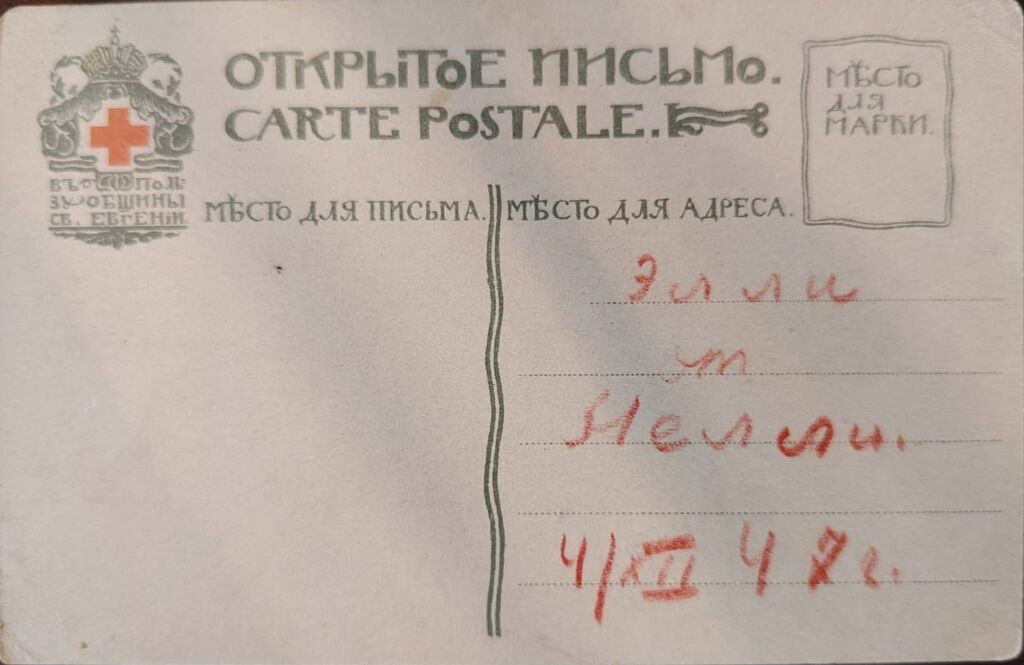 ОТКРЫТОЕ ПИСЬМО.
CARTE POSTALE.
МѢСТО
ДЛЯ
МАРКИ.
ВЪ ПОЛЬ-
ЗУ ОБЩИНЫ
СВ. ЕВГЕНІИ.
МѢСТО ДЛЯ ПИСЬМА.
МѢСТО ДЛЯ АДРЕСА.
Элли
от
Нелли.
4/XII 47г.